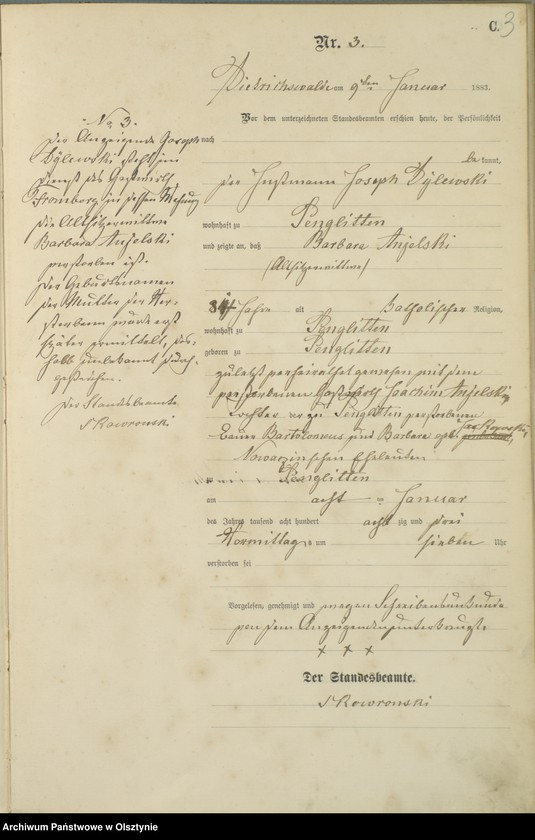 C. 3
Nr. 3.
Dietrichswalde am 9ten Januar 1883.
Vor dem unterzeichneten Standesbeamten erschien heute, der Persönlichkeit
nach
bekannt,
der Joseph Dylewski
wohnhaft zu Penglitten
und zeigte an, daß Barbara Anjelski
(Altsitzerwittwe)
84 Jahre alt Katholischer Religion,
wohnhaft zu Penglitten
geboren zu Penglitten
zuletzt verheirathet gewesen mit dem
verstorbenen Joachim Anjelski,
Tochter der zu Penglitten verstorbenen
Bauer Bartolomeus und Barbara geb.
Eheleuten
Penglitten
am acht Januar
des Jahres tausend acht hundert acht zig und drei
Vormittags um sieben Uhr
verstorben sei
Vorgelesen, genehmigt und wegen Schreibensunkunde
von dem Anzeigenden unterkreuzt
+ + +
Der Standesbeamte.
Skowronski
No 3.
Der Anzeigende Joseph
Dylewski steht im
Dienst des Gastwirth
in dessen
die Altsitzerwittwe
Barbara Anjelski
verstorben ist.
Der Geburtsnamen
der Mutter der Ver-
storbenen wurde erst
später ermittelt, des-
halb unbekannt durch-
gestrichen.
Der Standesbeamte
Skowronski
Archiwum Państwowe w Olsztynie